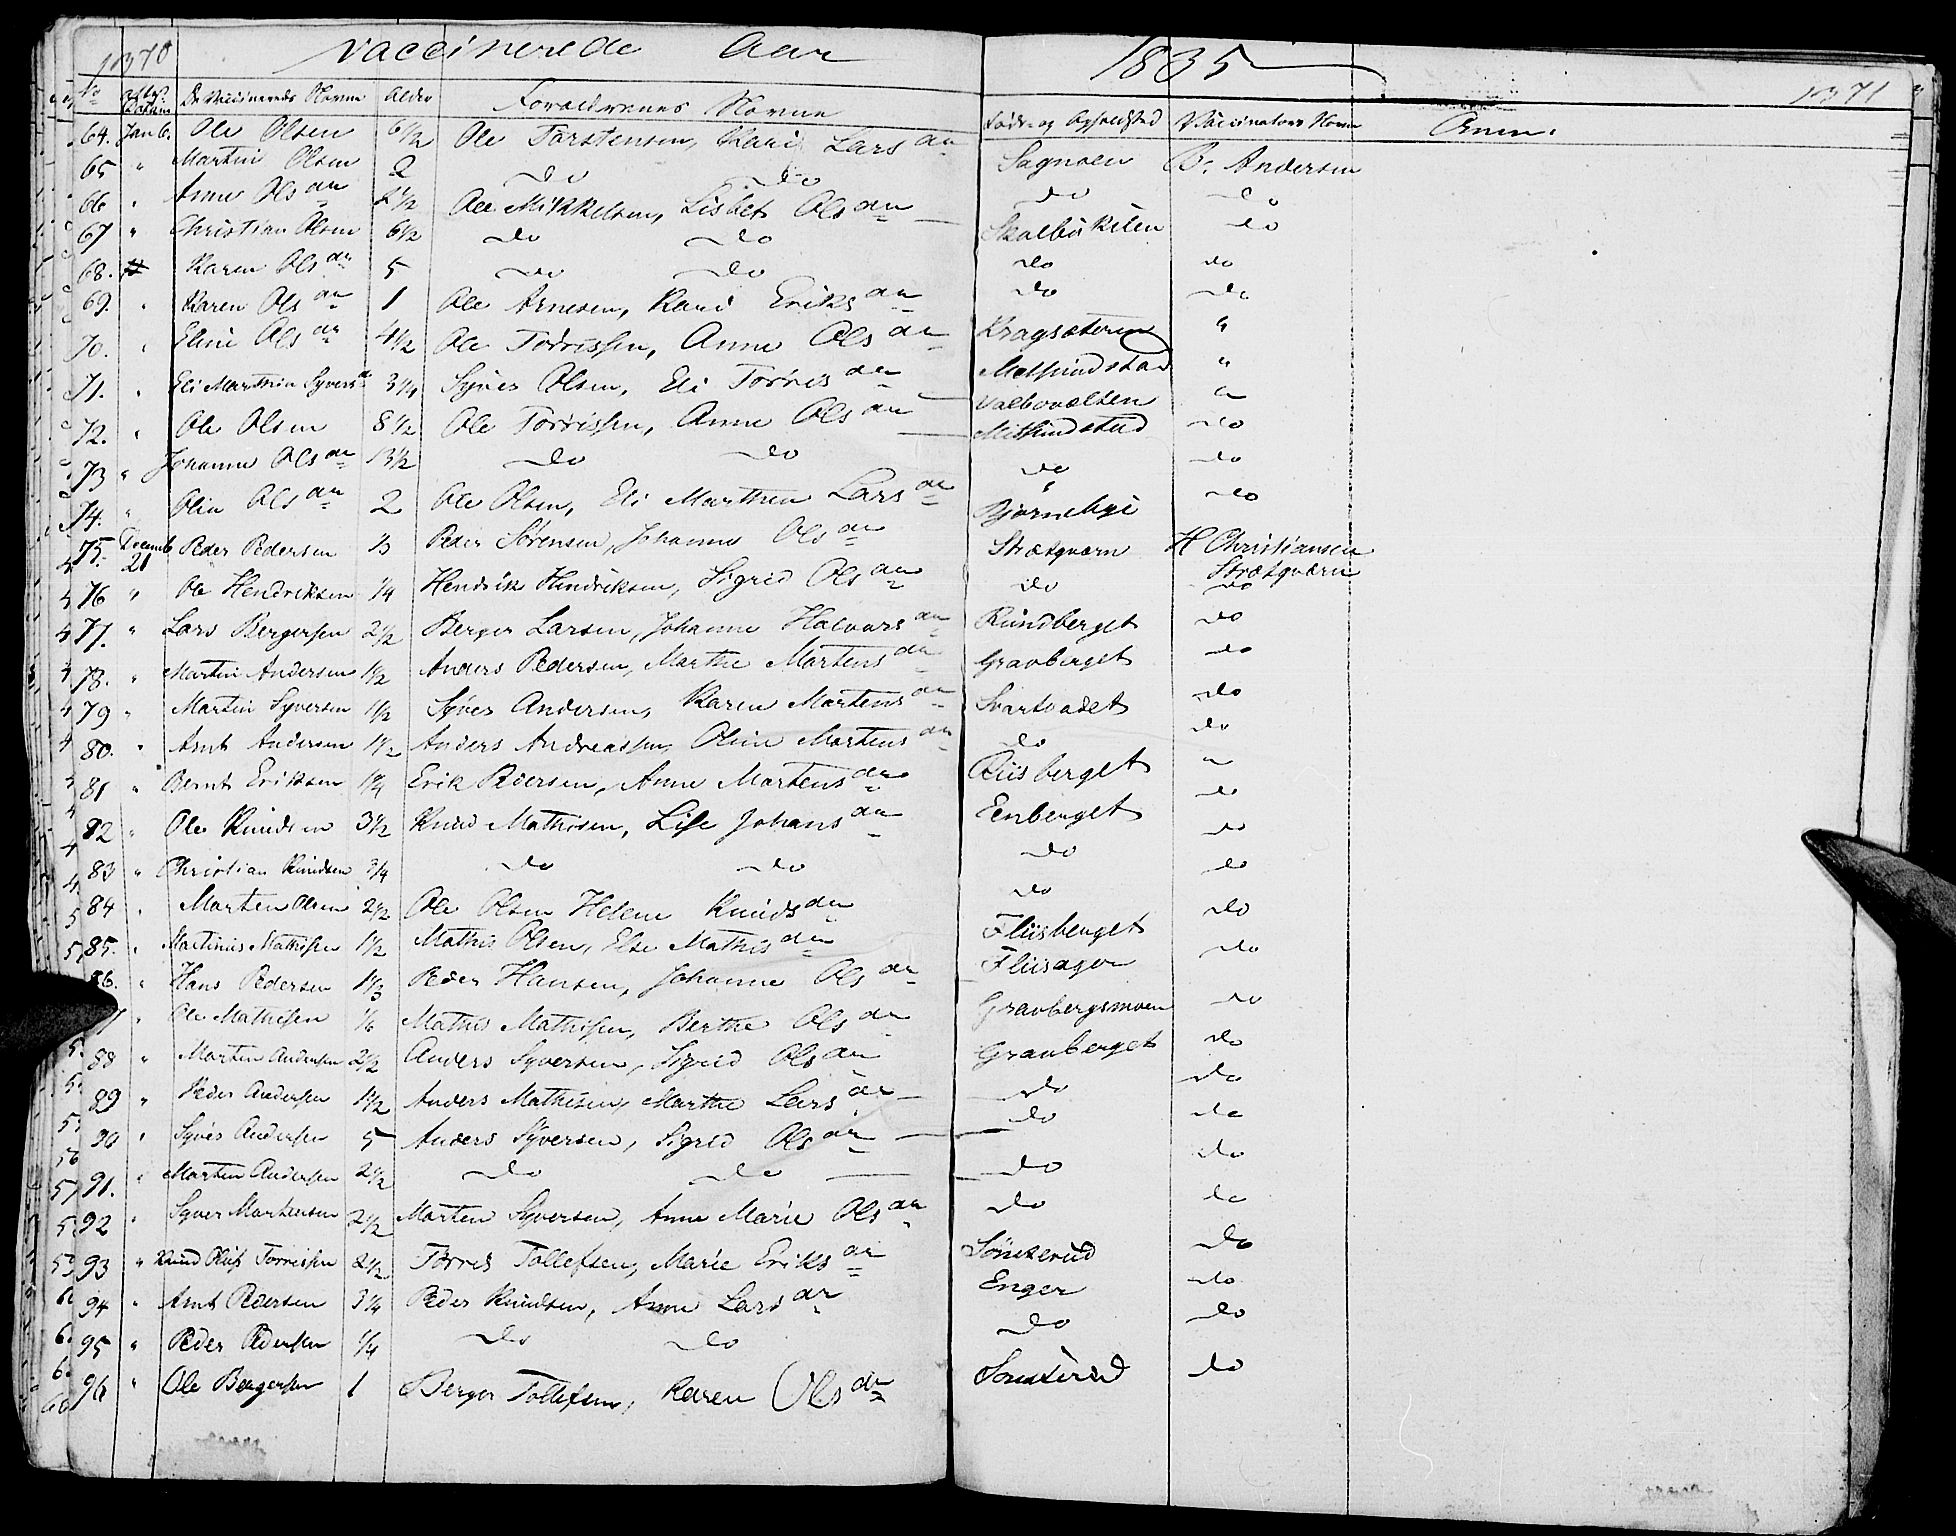 1370 Vaccinerede Aar 1835 1371
No Attest Datum De Vaccineredes Navne Alder Forældrenes Navne Føde- og Opholdsted Vaccinateurs Navn Anm.
64. Jan 6. Ole Olsen 6 1/2 Ole Torstensen, Kari Larsdr Sagmoen B. Andersen
65 " Martin Olsen 2 do do do do
66 " Anne Olsdr 2 1/2 Ole Mikkelsen, Lisbet Olsdr Skalbukilen do
67 " Christian Olsen 6 1/2 do do do do
68. " Karen Olsdr 5 do do do do
69. " Karen Olsdr 1 Ole Arnesen, Kari Eriksdr Kragsæteren "
70. " Eline Olsdr 4 1/2 Ole Torrissen, Anne Olsdr Melhundstad "
71. " Eli Marthia Syversdr 3/4 Syver Olsen, Eli Torrisdr Valbovolten "
72. " Ole Olsen 8 1/2 Ole Torrissen, Anne Olsdr Mithundstad do
73 " Johanne Olsdr 13 1/2 do do do do
74. " Olia Olsdr 2 Ole Olsen, Eli Marthea Larsdr Bjørneby do
75. Decemb 21 Peder Pedersen 1/3 Peder Sørensen, Johanne Olsdr Strætqværn H Christiansen Strætqværn
76 " Ole Hendriksen 1/4 Hendrik Hendriksen, Sigrid Olsdr do do
77. " Lars Bergersen 2 1/2 Berger Larsen, Johanne Halvorsdr Rundberget do
78. " Martin Andersen 1 1/2 Anders Pedersen, Marthe Martensdr Gravberget do
79 " Martin Syversen 1 1/2 Syver Andersen, Karen Martensdr Svartvadet do
80. " Arnt Andersen 1 1/2 Anders Andreassen, Oline Martensdr do do
81 " Bernt Eriksen 1 3/4 Erik Pedersen, Anne Martensdr Riisberget "
82 " Ole Knudsen 3 1/2 Knud Mathisen, Lise Johansdr Eenberget do
83 " Christian Knudsen 3/4 do do do do
84 " Marten Olsen 2 1/2 Ole Olsen Helene Knudsdr do do
85. " Martinus Mathisen 1 1/2 Mathis Olsen, Else Mathisdr Fliisberget do
86. " Hans Pedersen 1 1/3 Peder Hansen, Johanne Olsdr Fliisagen do
" Ole Mathisen 1/6 Mathis Mathisen, Berthe Olsdr Gravbergsmoen do
88 " Marten Andersen 2 1/2 Anders Syversen, Sigrid Olsdr Gravberget do
89 " Peder Andersen 1 1/2 Anders Mathisen, Marthe Larsdr do do
90 " Syver Andersen 5 Anders Syversen, Sigrid Olsdr do do
91. " Marten Andersen 2 1/2 do do do do
92 " Syver Martensen 2 1/2 Morten Syversen, Anne Marie Olsdr do do
93 " Knud Oluf Torrissen 2 1/2 Torris Tollefsen, Marie Eriksdr Sønsterud do
94 " Arnt Pedersen 3 1/4 Peder Knudsen, Anne Larsdr Enger do
95 " Peder Pedersen 1/4 do do do do
96 " Ole Bergersen 1 Berger Tollefsen, Karen Olsdr Sønsterud do